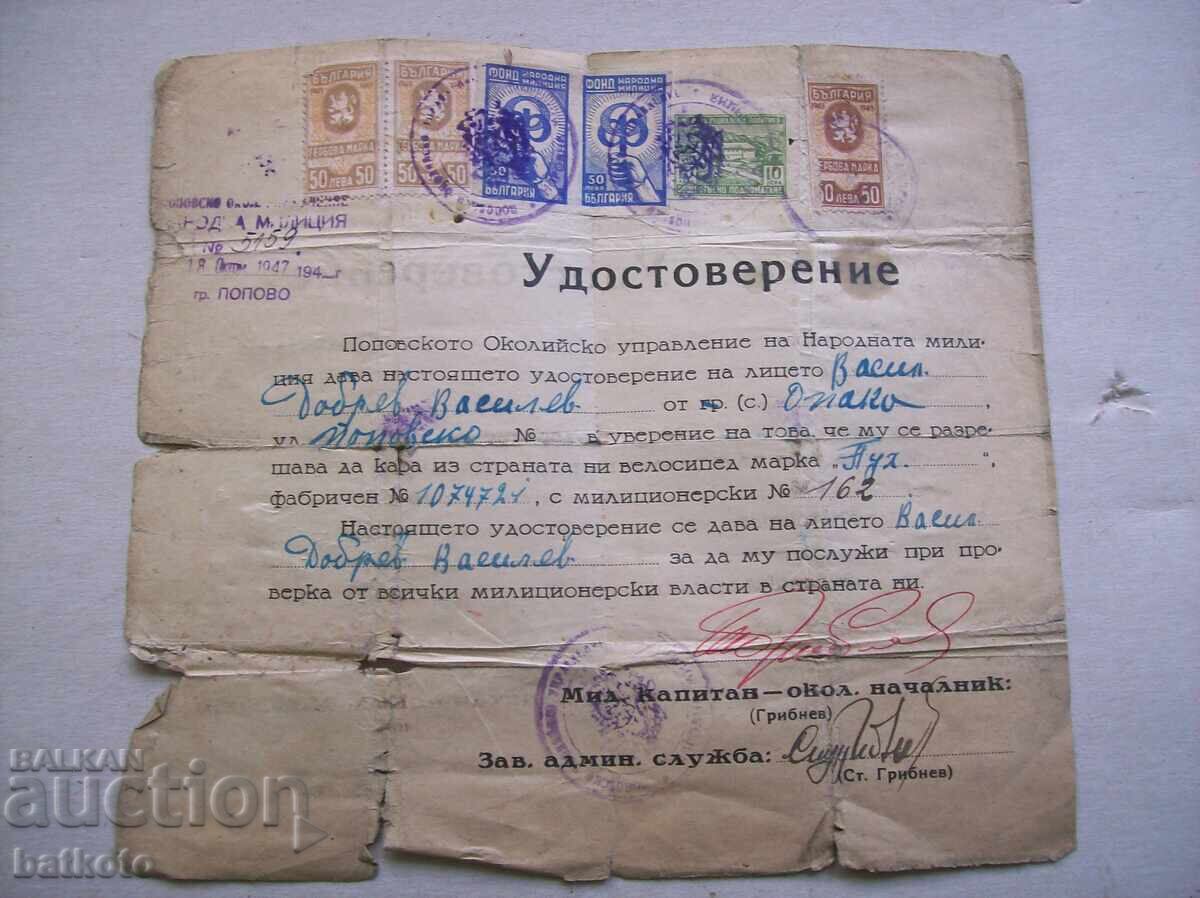 БЪЛГАРИЯ
ГЕРБОВА МАРКА
50 ЛЕВА 50
БЪЛГАРИЯ
ГЕРБОВА МАРКА
50 ЛЕВА 50
ФОНД НАРОДНА МИЛИЦИЯ
50
БЪЛГАРИЯ
ФОНД НАРОДНА МИЛИЦИЯ
50 ЛЕВА
БЪЛГАРИЯ
10
ОБЩЕСТВЕНО ПОДПОМАГАНЕ
БЪЛГАРИЯ
ГЕРБОВА МАРКА
50 ЛЕВА 50
МИЛИЦИЯ
№ 5159
18 1947 194 г
гр. ПОПОВО
Удостоверение
Поповското Околийско управление на Народната мили-
ция дава настоящето удостоверение на лицето Васил
Добрев Василев от гр. (с.) Опака,
ул Поповско № в уверение на това, че му се разре-
шава да кара из страната ни велосипед марка „Пух",
фабричен № 1074721, с милиционерски № 162
Настоящето удостоверение се дава на лицето Васил
Добрев Василев за да му послужи при про-
верка от всички милиционерски власти в страната ни.
Мил. капитан—окол. началник:
(Грибнев)
Зав. админ. служба:
(Ст. Грибнев)
BALKAN
auction
batkoto